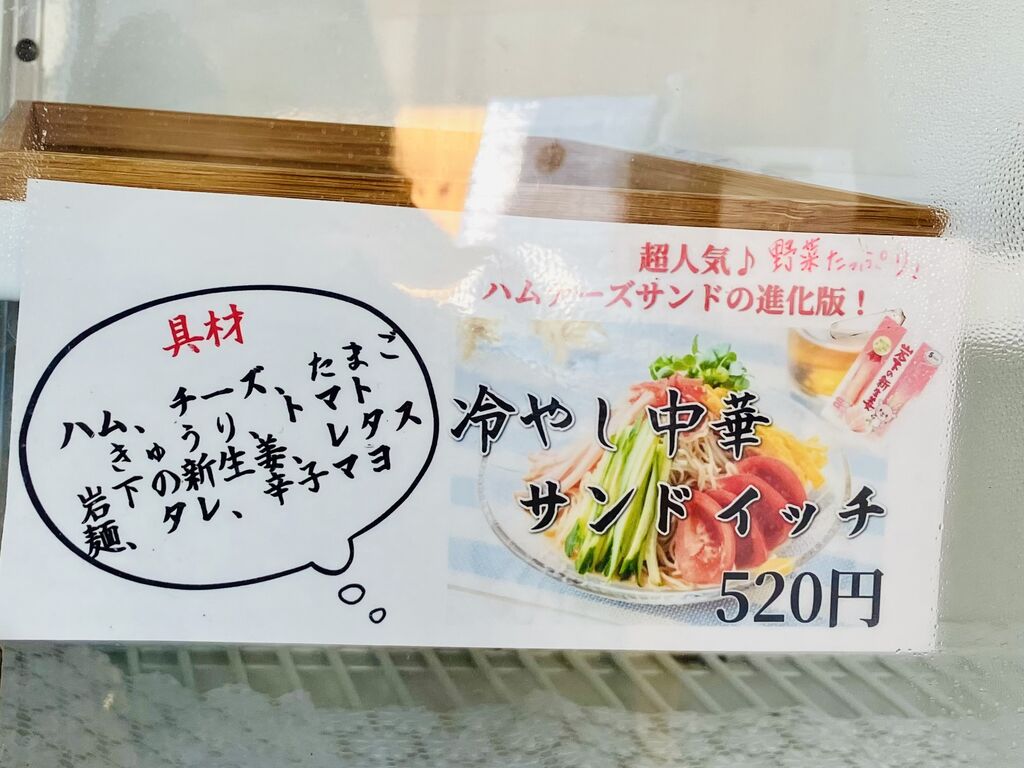 超人気♪ 野菜たっぷり!
ハムチーズサンドの進化版!
具材
ハム、チーズ、たまご
きゅうり、トマト
岩下の新生姜、レタス
麺、タレ、辛子マヨ
冷やし中華
サンドイッチ
520円
岩下の新生姜